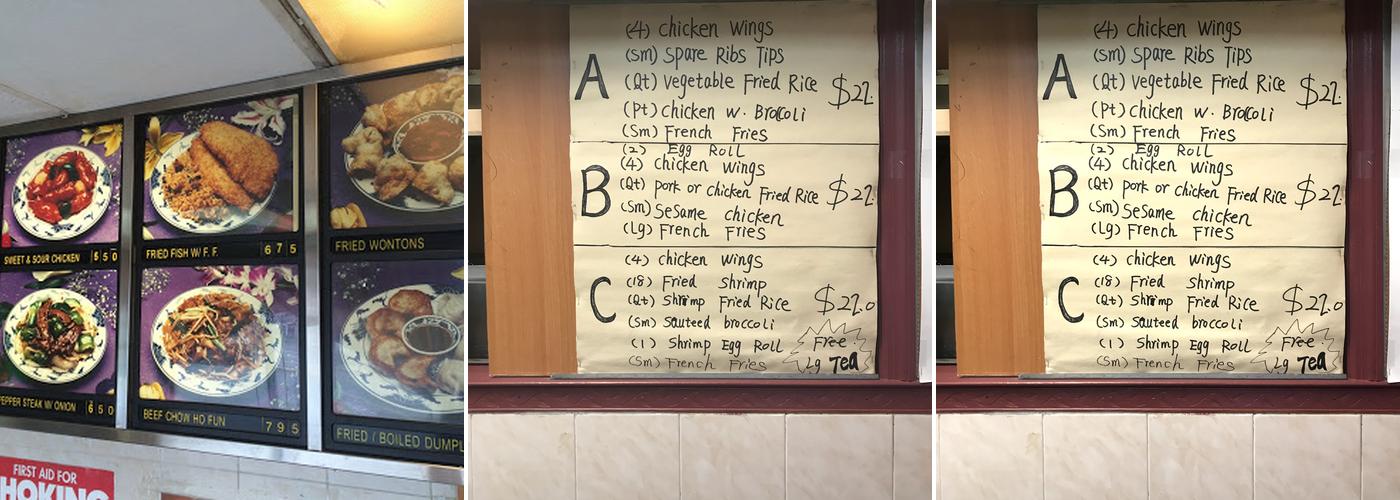 SWEET & SOUR CHICKEN 5 5 0
FRIED FISH W/ F. F. 6 7 5
FRIED WONTONS
PEPPER STEAK W/ ONION 6 5 0
BEEF CHOW HO FUN 7 9 5
FRIED / BOILED DUMPL
FIRST AID FOR
HOKING
A
(4) chicken wings
(Sm) Spare Ribs Tips
(Qt) vegetable Fried Rice $22
(Pt) chicken w. Broccoli
(Sm) French Fries
B
(2) Egg Roll
(4) chicken wings
(Qt) pork or chicken Fried Rice $22
(Sm) Sesame chicken
(Lg) French Fries
C
(4) chicken wings
(18) Fried Shrimp
(Qt) Shrimp Fried Rice
(Sm) Sauteed broccoli
(1) Shrimp Egg Roll
(Sm) French Fries
Free
Lg Tea
A
(4) chicken wings
(Sm) Spare Ribs Tips
(Qt) vegetable Fried Rice $22
(Pt) chicken w. Broccoli
(Sm) French Fries
B
(2) Egg Roll
(4) chicken wings
(Qt) pork or chicken Fried Rice $22
(Sm) Sesame chicken
(Lg) French Fries
C
(4) chicken wings
(18) Fried Shrimp
(Qt) Shrimp Fried Rice
(Sm) Sauteed broccoli
(1) Shrimp Egg Roll
(Sm) French Fries
Free
Lg Tea